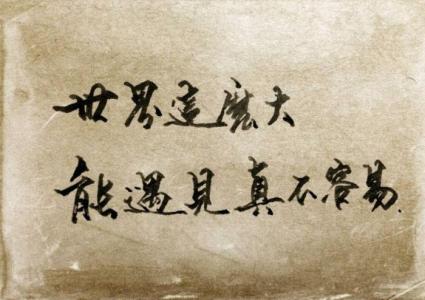 世界這麼大
能遇見真不容易.